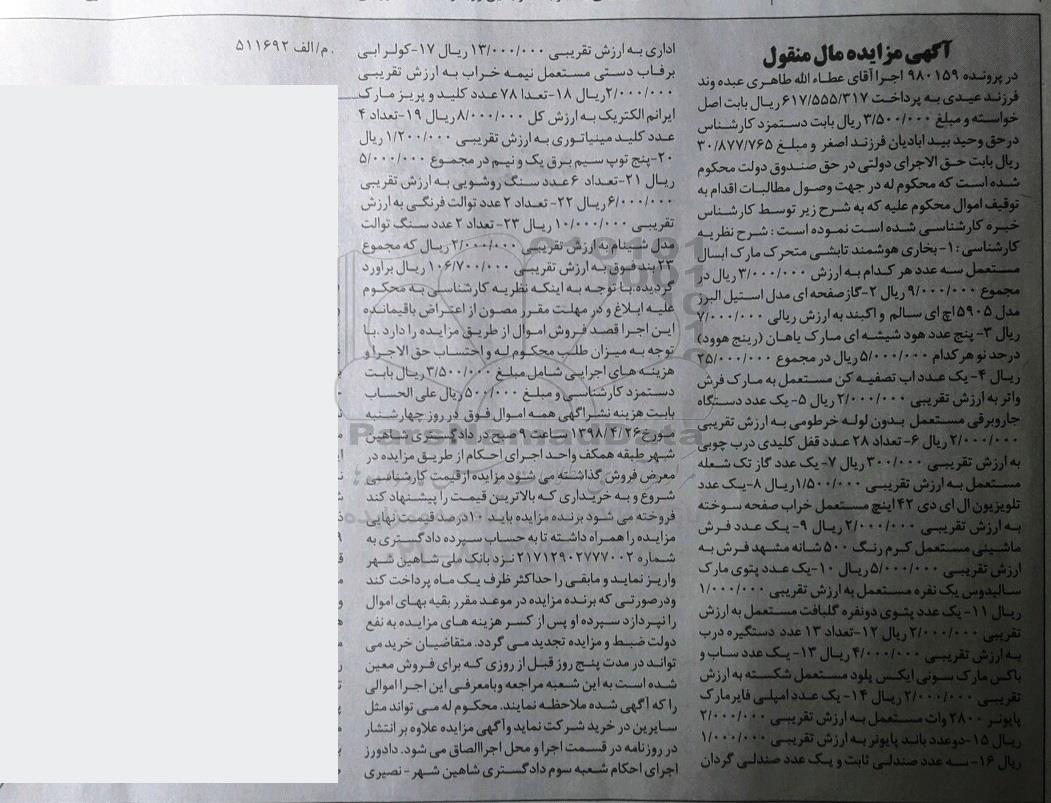 آگهی مزایده مال منقول
در پرونده ۹۸۰۱۵۹ اجرا آقای عطاء الله طاهری عبده وند
فرزند عیدی به پرداخت ۶۱۷/۵۵۵/۳۱۷ ریال بابت اصل
خواسته و مبلغ ۳/۵۰۰/۰۰۰ ریال بابت دستمزد کارشناس
درحق وحید بیدابادیان فرزند اصغر و مبلغ ۳۰/۸۷۷/۷۶۵
ریال بابت حق الاجرای دولتی در حق صندوق دولت محکوم
شده است که محکوم له در جهت وصول مطالبات اقدام به
توقیف اموال محکوم علیه که به شرح زیر توسط کارشناس
خبره کارشناسی شده است نموده است : شرح نظریه
کارشناسی : ۱- بخاری هوشمند تابشی متحرک مارک ابسال
مستعمل سه عدد هر کدام به ارزش ۳/۰۰۰/۰۰۰ ریال در
مجموع ۹/۰۰۰/۰۰۰ ریال ۲-گازصفحه ای مدل استیل البرز
مدل ۵۹۰۵ اچ ای سالم و اکبند به ارزش ریالی ۷/۰۰۰/۰۰۰
ریال ۳- پنج عدد هود شیشه ای مارک یاهان (رینج هوود)
درحد نو هرکدام ۵/۰۰۰/۰۰۰ ریال در مجموع ۲۵/۰۰۰/۰۰۰
ریال ۴- یک عدد اب تصفیه کن مستعمل به مارک فرش
واتر به ارزش تقریبی ۲/۰۰۰/۰۰۰ ریال ۵- یک عدد دستگاه
جاروبرقی مستعمل بدون لوله خرطومی به ارزش تقریبی
۲/۰۰۰/۰۰۰ ریال ۶- تعداد ۲۸ عدد قفل کلیدی درب چوبی
به ارزش تقریبی ۳۰۰/۰۰۰ ریال ۷- یک عدد گاز تک شعله
مستعمل به ارزش تقریبی ۱/۵۰۰/۰۰۰ ریال ۸-یک عدد
تلویزیون ال ای دی ۴۲ اینچ مستعمل خراب صفحه سوخته
به ارزش تقریبی ۲/۰۰۰/۰۰۰ ریال ۹- یک عدد فرش
ماشینی مستعمل کرم رنگ ۵۰۰ شانه مشهد فرش به
ارزش تقریبی ۵/۰۰۰/۰۰۰ ریال ۱۰-یک عدد پتوی مارک
سالیدوس یک نفره مستعمل به ارزش تقریبی ۱/۰۰۰/۰۰۰
ریال ۱۱- یک عدد پتوی دونفره گلبافت مستعمل به ارزش
تقریبی ۲/۰۰۰/۰۰۰ ریال ۱۲-تعداد ۱۳ عدد دستگیره درب
به ارزش تقریبی ۴/۰۰۰/۰۰۰ ریال ۱۳- یک عدد ساب و
باکس مارک سونی ایکس پلود مستعمل شکسته به ارزش
تقریبی ۲/۰۰۰/۰۰۰ ریال ۱۴- یک عدد امپلی فایر مارک
پایونر ۲۸۰۰ وات مستعمل به ارزش تقریبی ۲/۰۰۰/۰۰۰
ریال ۱۵-دوعدد باند پایونر به ارزش تقریبی ۱/۰۰۰/۰۰۰
ریال ۱۶- سه عدد صندلی ثابت و یک عدد صندلی گردان
اداری به ارزش تقریبی ۱۳/۰۰۰/۰۰۰ ریال ۱۷-کولر ابی
برفاب دستی مستعمل نیمه خراب به ارزش تقریبی
۲/۰۰۰/۰۰۰ ریال ۱۸-تعدا ۷۸ عدد کلید و پریز مارک
ایرانم الکتریک به ارزش کل ۸/۰۰۰/۰۰۰ ریال ۱۹-تعداد ۴
عدد کلید مینیاتوری به ارزش تقریبی ۱/۲۰۰/۰۰۰ ریال
۲۰-پنج توپ سیم برق یک و نیم در مجموع ۵/۰۰۰/۰۰۰
ریال ۲۱-تعداد ۶ عدد سنگ روشویی به ارزش تقریبی
۶/۰۰۰/۰۰۰ ریال ۲۲- تعداد ۲ عدد توالت فرنگی به ارزش
تقریبی ۱۰/۰۰۰/۰۰۰ ریال ۲۳- تعداد ۲ عدد سنگ توالت
مدل شینام به ارزش تقریبی ۲/۰۰۰/۰۰۰ ریال که مجموع
۲۳ بند فوق به ارزش تقریبی ۱۰۶/۷۰۰/۰۰۰ ریال براورد
گردیده.با توجه به اینکه نظریه کارشناسی به محکوم
علیه ابلاغ و در مهلت مقرر مصون از اعتراض باقیمانده
این اجرا قصد فروش اموال از طریق مزایده را دارد .با
توجه به میزان طلب محکوم له و احتساب حق الاجرا و
هزینه های اجرایی شامل مبلغ ۳/۵۰۰/۰۰۰ ریال بابت
دستمزد کارشناسی و مبلغ ۵۰۰/۰۰۰ ریال علی الحساب
بابت هزینه نشر اگهی همه اموال فوق در روز چهارشنبه
مورخ ۱۳۹۸/۴/۲۶ ساعت ۹ صبح در دادگستری شاهین
شهر طبقه همکف واحد اجرای احکام از طریق مزایده در
معرض فروش گذاشته می شود مزایده ازقیمت کارشناسی
شروع و به خریداری که بالاترین قیمت را پیشنهاد کند
فروخته می شود برنده مزایده باید ۱۰ درصد قیمت نهایی
مزایده را همراه داشته تا به حساب سپرده دادگستری به
شماره ۲۱۷۱۲۹۰۲۷۷۷۰۰۲ نزد بانک ملی شاهین شهر
واریز نماید و مابقی را حداکثر ظرف یک ماه پرداخت کند
ودرصورتی که برنده مزایده در موعد مقرر بقیه بهای اموال
را نپردازد سپرده او پس از کسر هزینه های مزایده به نفع
دولت ضبط و مزایده تجدید می گردد. متقاضیان خرید می
تواند در مدت پنج روز قبل از روزی که برای فروش معین
شده است به این شعبه مراجعه وبامعرفی این اجرا اموالی
را که آگهی شده ملاحظه نمایند. محکوم له می تواند مثل
سایرین در خرید شرکت نماید و آگهی مزایده علاوه بر انتشار
در روزنامه در قسمت اجرا و محل اجراالصاق می شود. دادورز
اجرای احکام شعبه سوم دادگستری شاهین شهر - نصیری
م/الف ۵۱۱۶۹۲
ParsNamadData